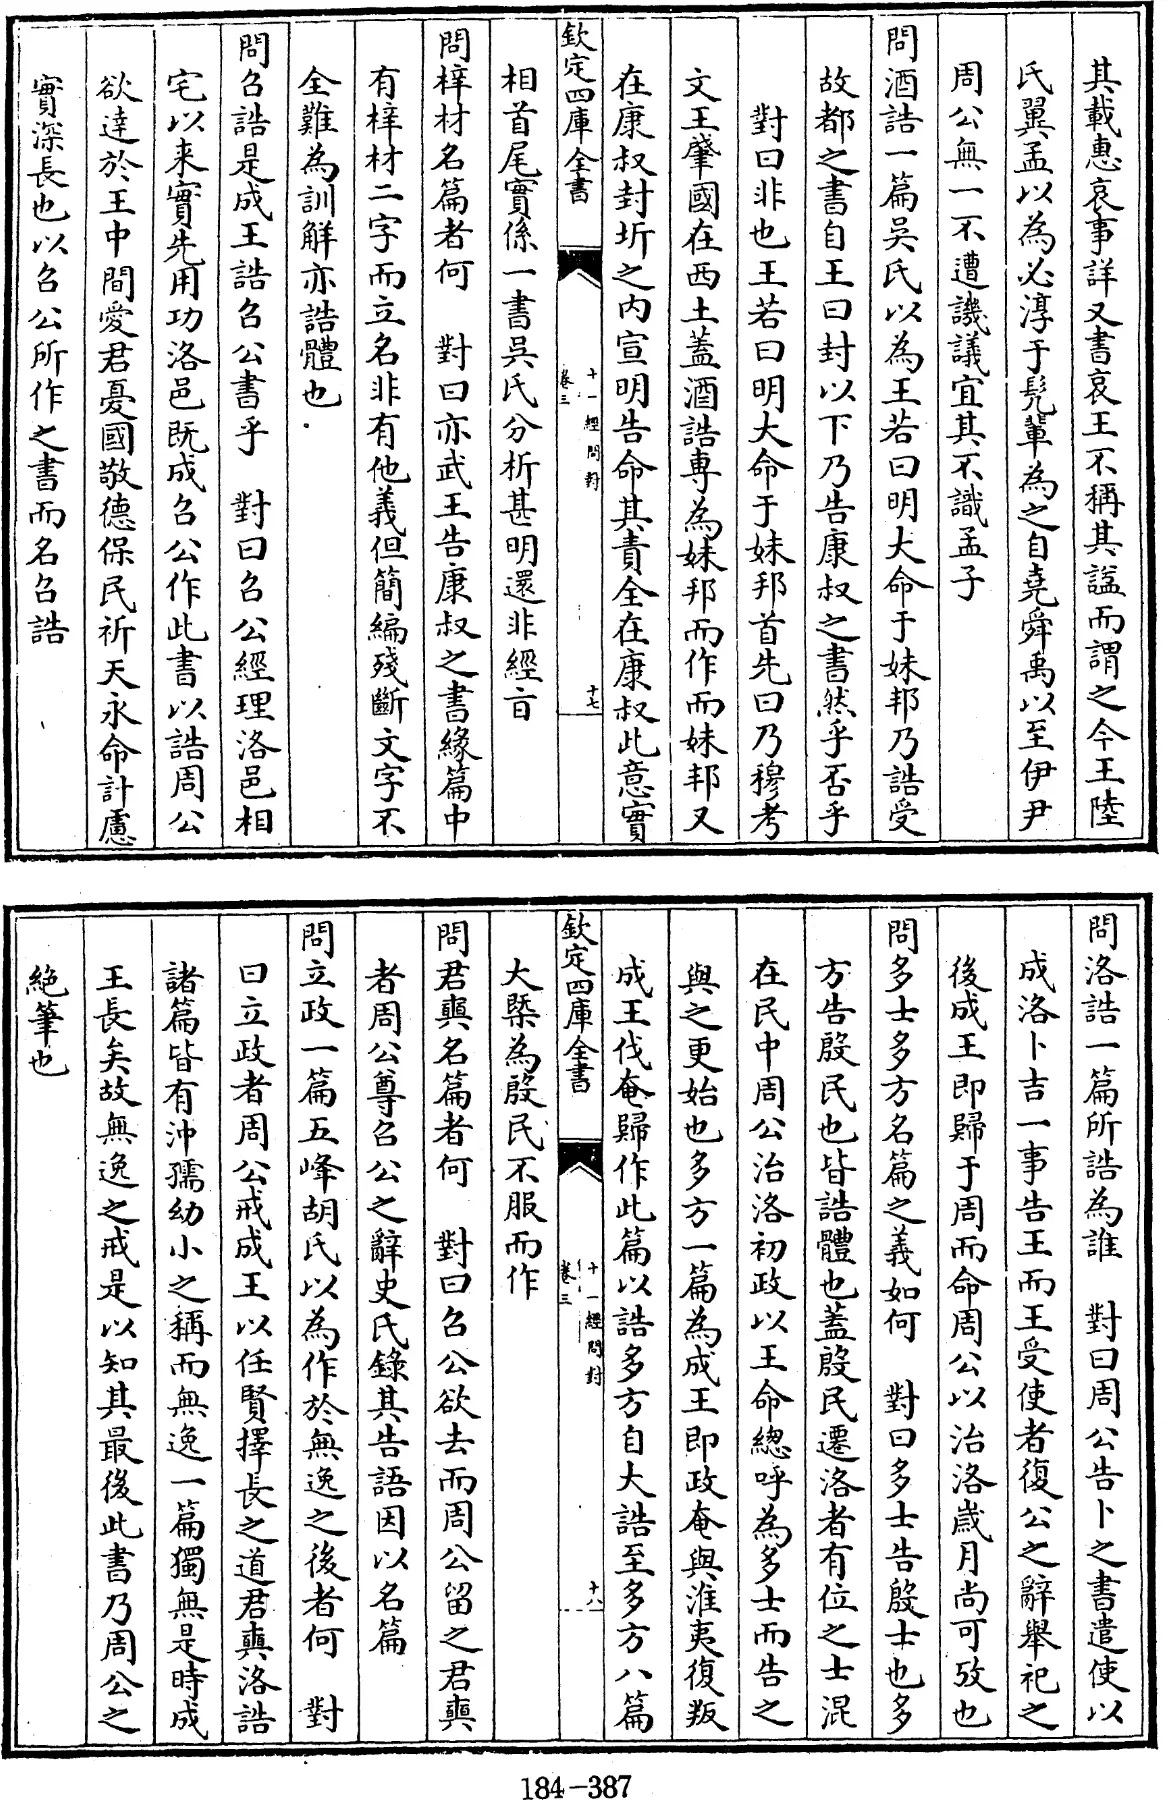 其載惠哀事詳又書哀王不稱其諡而謂之今王陸
氏翼孟以為必淳于髡輩為之自堯舜禹以至伊尹
周公無一不遭譏議宜其不識孟子
問酒誥一篇吳氏以為王若曰明大命于妹邦乃誥受
故都之書自王曰封以下乃告康叔之書然乎否乎
對曰非也王若曰明大命于妹邦首先曰乃穆考
文王肇國在西土蓋酒誥專為妹邦而作而妹邦又
在康叔封圻之内宣明告命其責全在康叔此意實
欽定四庫全書
十一經問對
卷三
十七
相首尾實係一書吳氏分析甚明還非經㫖
問梓材名篇者何 對曰亦武王告康叔之書緣篇中
有梓材二字而立名非有他義但簡編殘斷文字不
全難為訓解亦誥體也
問召誥是成王誥召公書乎 對曰召公經理洛邑相
宅以來實先用功洛邑既成召公作此書以誥周公
欲達於王中間愛君憂國敬德保民祈天永命計慮
實深長也以召公所作之書而名召誥
問洛誥一篇所誥為誰 對曰周公告卜之書遣使以
成洛卜吉一事告王而王受使者復公之辭舉祀之
後成王即歸于周而命周公以治洛歲月尚可攷也
問多士多方名篇之義如何 對曰多士告殷士也多
方告殷民也皆誥體也蓋殷民遷洛者有位之士混
在民中周公治洛初政以王命總呼為多士而告之
與之更始也多方一篇為成王即政奄與淮夷復叛
成王伐奄歸作此篇以誥多方自大誥至多方八篇
欽定四庫全書
十一經問對
卷三
十八
大槩為殷民不服而作
問君奭名篇者何 對曰召公欲去而周公留之君奭
者周公尊召公之辭史氏錄其告語因以名篇
問立政一篇五峰胡氏以為作於無逸之後者何 對
曰立政者周公戒成王以任賢擇長之道君奭洛誥
諸篇皆有沖孺幼小之稱而無逸一篇獨無是時成
王長矣故無逸之戒是以知其最後此書乃周公之
絶筆也
184-387